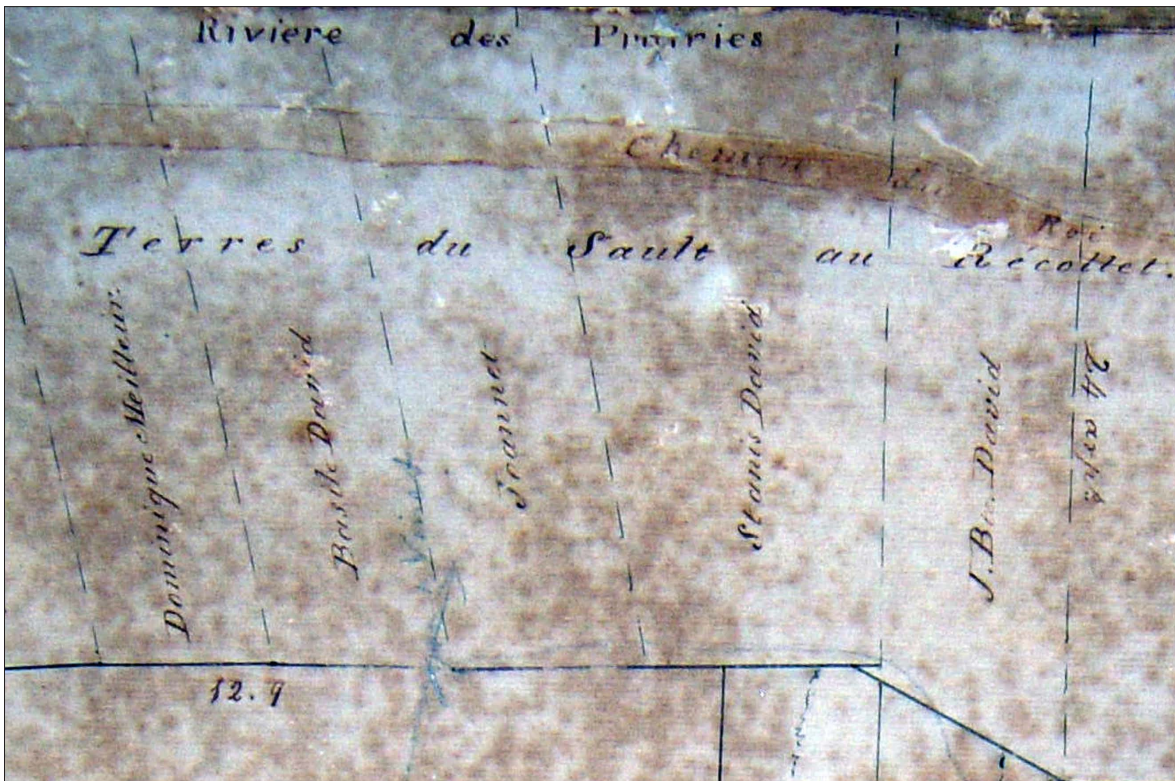 Riviere des Prairies
Chemin du Roi
Terres du Sault au Récollet.
Dominique Meilleur.
Basile David
Jeanne
Stanis David
J. Bte. David
24 arpts
12.9